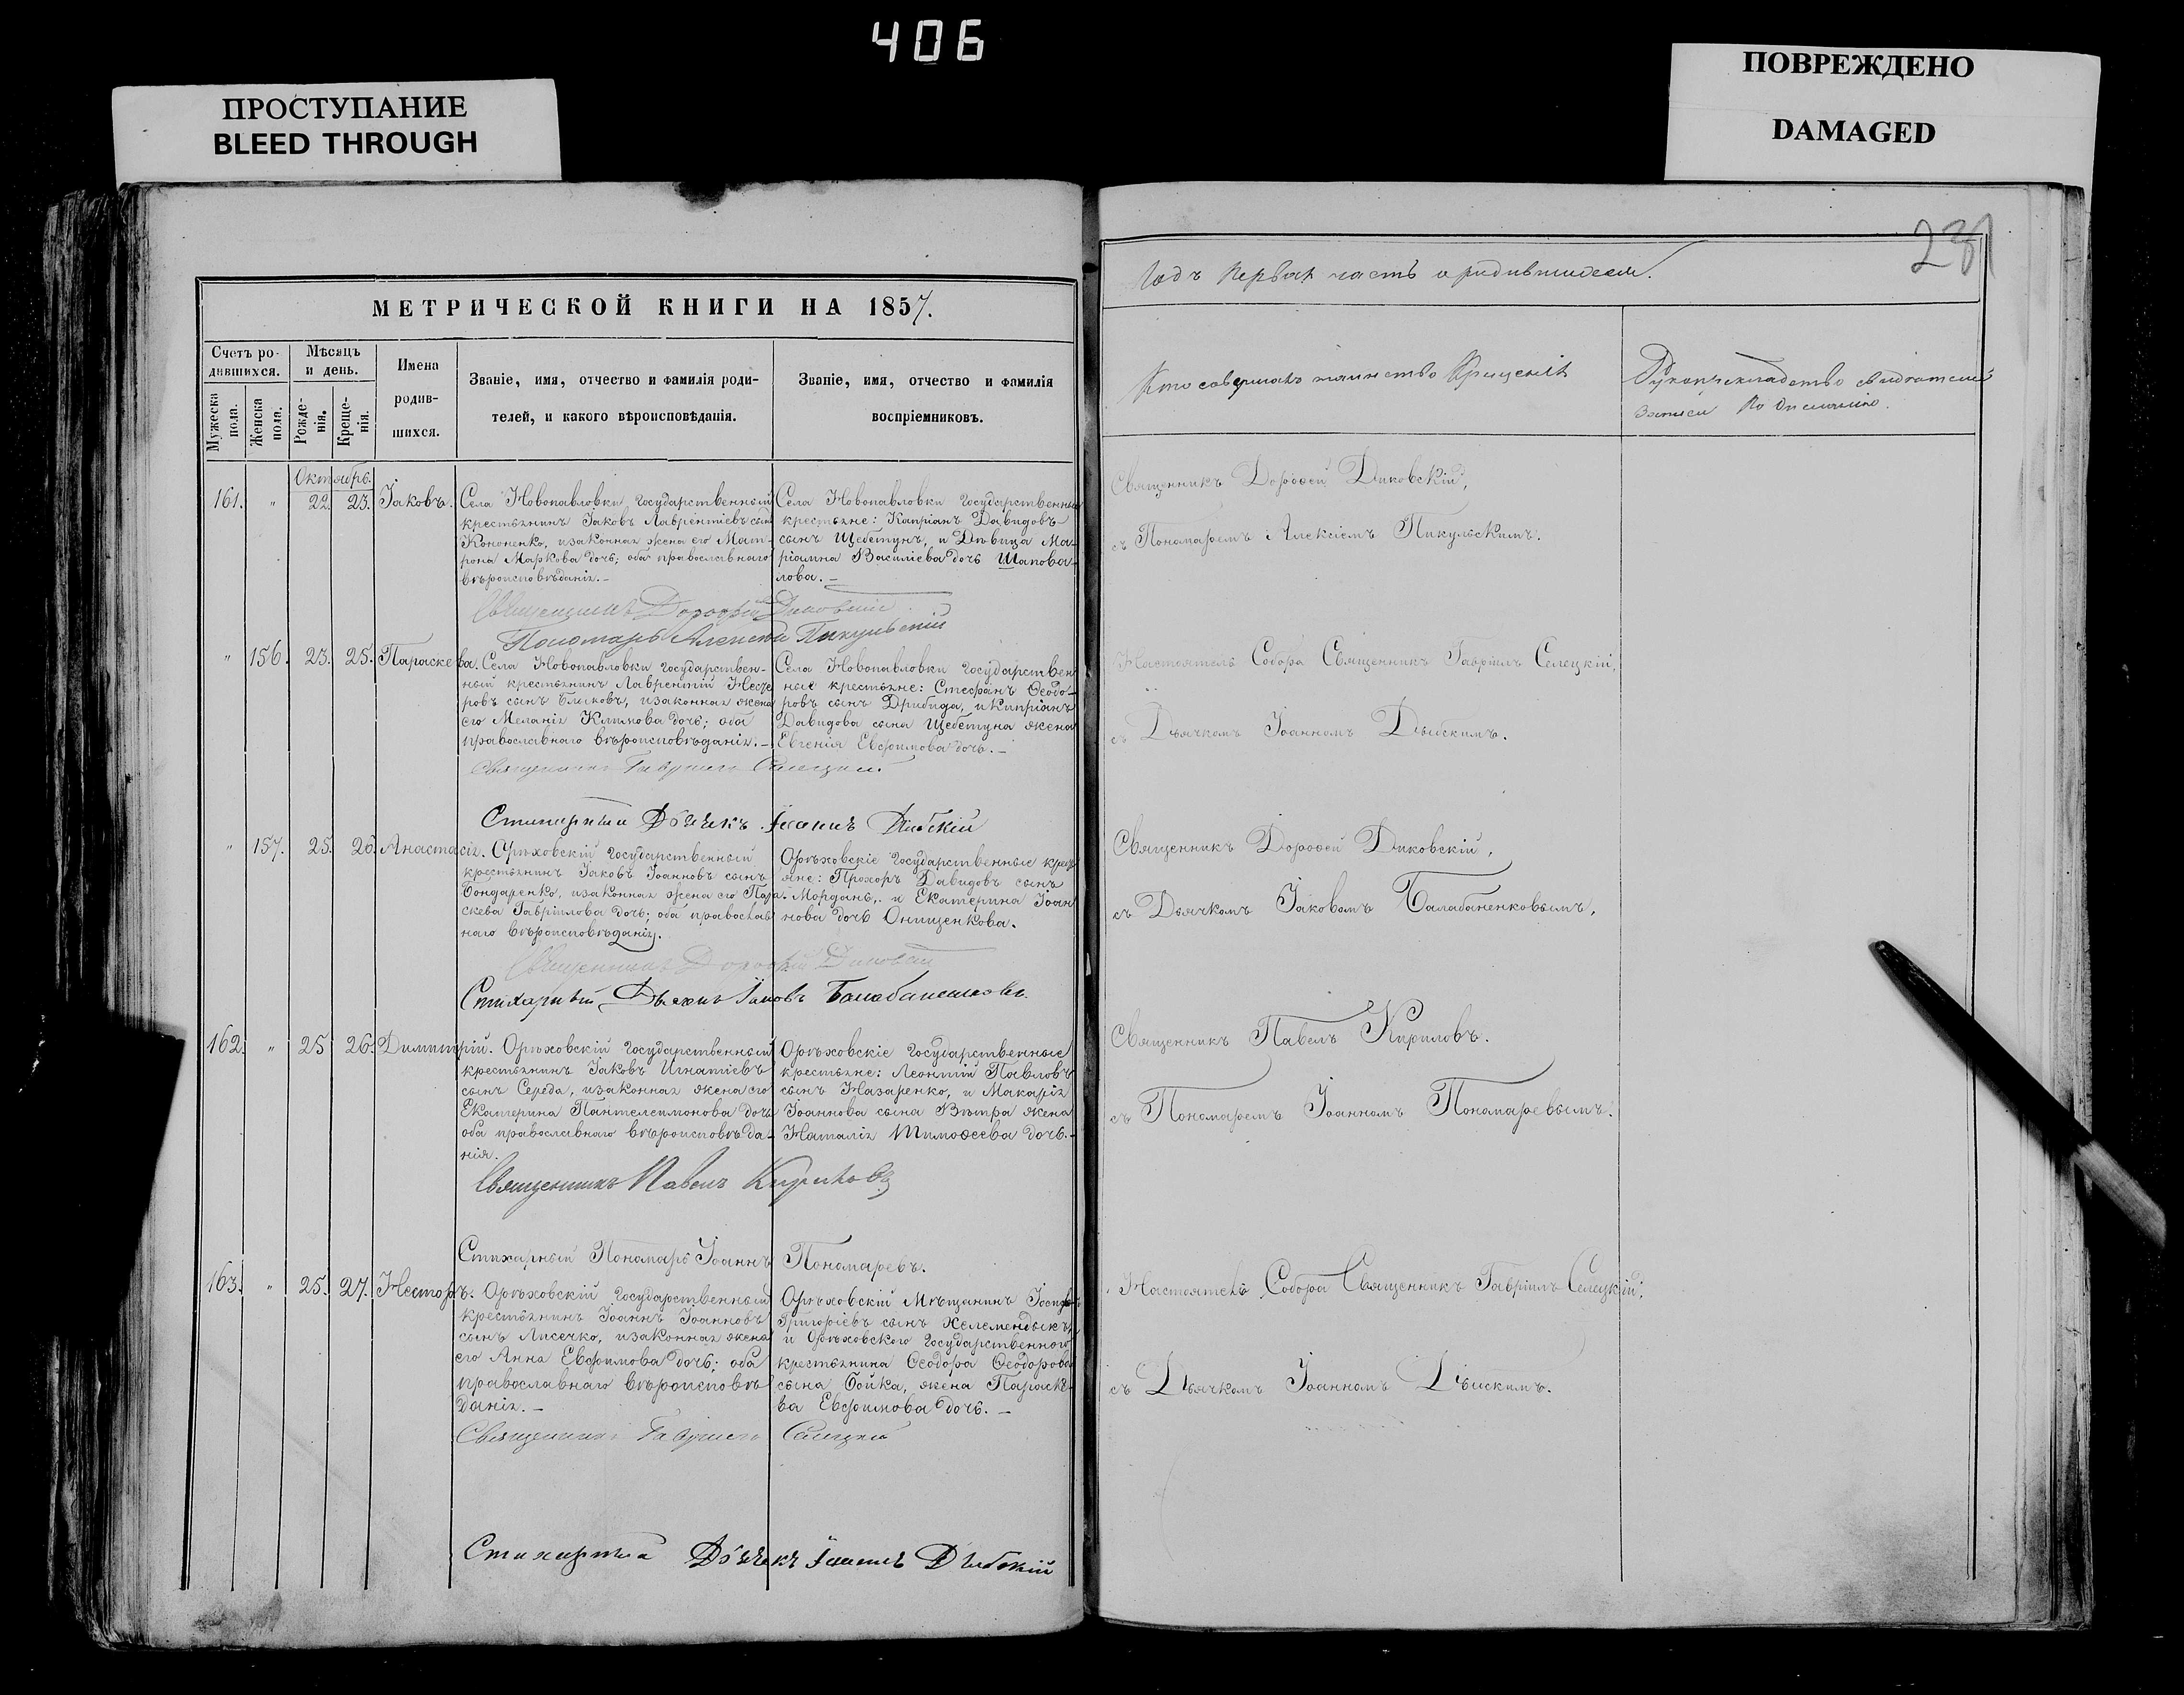 406
ПРОСТУПАНИЕ
BLEED THROUGH
ПОВРЕЖДЕНО
DAMAGED
МЕТРИЧЕСКОЙ КНИГИ НА 1857.
Счетъ ро-
дившихся.
Мужеска
пола.
Женска
пола.
Мѣсяцъ
и день.
Рожде-
нія.
Креще-
нія.
Имена
родив-
шихся.
Званіе, имя, отчество и фамилія роди-
телей, и какого вѣроисповѣданія.
Званіе, имя, отчество и фамилія
воспріемниковъ.
Октябрь.
161. " 22. 23. Іаковъ.
Села Новопавловки государственный
крестьянинъ Іаковъ Лаврентіевъ сынъ
Кононенко, и законная жена его Мат-
рона Маркова дочь; оба православнаго
вѣроисповѣданія.-
Села Новопавловки государственные
крестьяне: Капріанъ Давидовъ
сынъ Щебетунъ, и Дѣвица Ма-
ріамна Василіева дочь Шапова-
лова.-
Священникъ Дорофей Диковскій
Пономарь Алексій Пикульскій
" 156. 23. 25. Параскева.
Села Новопавловки государствен-
ный крестьянинъ Лаврентій
ровъ сынъ и законная жена
его Меланія Климова дочь; оба
православнаго вѣроисповѣданія.-
Села Новопавловки государствен
ные крестьяне: Стефанъ Ѳеодо-
ровъ сынъ Дрибида, и Кипріана
Давидова сына Щебетуна жена
Евгенія Евфимова дочь.-
Священникъ Гавріилъ Селецкій
Стихарный Дьячекъ Іоаннъ
" 157. 25. 26. Анастасія.
Орѣховскій государственный
крестьянинъ Іаковъ Іоанновъ сынъ
Бондаренко, и законная жена его Пара-
скева Гавріилова дочь; оба православ
наго вѣроисповѣданія.
Орѣховскіе государственные крест
яне: Прохоръ Давидовъ сынъ
Морданъ, и Екатерина Іоан
нова дочь Онищенкова.
Священникъ Дорофей Диковскій
Стихарный Дьячекъ Іаковъ
162. " 25 26. Димитрій.
Орѣховскій государственный
крестьянинъ Іаковъ Игнатіевъ
сынъ Середа, и законная жена его
Екатерина Пантелеимонова дочь
оба православнаго вѣроисповѣда-
нія.
Орѣховскіе государственные
крестьяне: Леонтій Павловъ
сынъ Назаренко, и Макарія
Іоаннова сына Вѣтра жена
Наталія Тимоѳеева дочь.-
Священникъ Павелъ Кириловъ
Стихарный Пономарь Іоаннъ Пономаревъ.
163. " 25. 27. Несторъ.
Орѣховскій государственный
крестьянинъ Іоаннъ Іоанновъ
сынъ Лисечко, и законная жена
его Анна Евфимова дочь; оба
православнаго вѣроисповѣ
данія.-
Орѣховскій Мѣщанинъ Іосифъ
Григоріевъ сынъ Келемендыкъ,
и Орѣховского государственного
крестьянина Ѳеодора Ѳеодорова
сына Бойка, жена Параске-
ва Евфимова дочь.-
Священникъ Гавріилъ Селецкій
Стихарный Дьячекъ Іоаннъ
Годъ Первая часть о родившихся.
Кто совершалъ таинство Крещенія
Рукоприкладство свидѣтелей
записи по желанію.
Священникъ Дороѳей Диковскій,
съ Пономаремъ Алексіемъ Пикульскимъ.
Настоятель Собора Священникъ Гавріилъ Селецкій,
съ Дьячкомъ Іоанномъ
Священникъ Дороѳей Диковскій,
съ Дьячкомъ Іаковомъ Балабаненковымъ,
Священникъ Павелъ Кириловъ.
съ Пономаремъ Іоанномъ Пономаревымъ.
Настоятель Собора Священникъ Гавріилъ Селецкій;
съ Дьячкомъ Іоанномъ